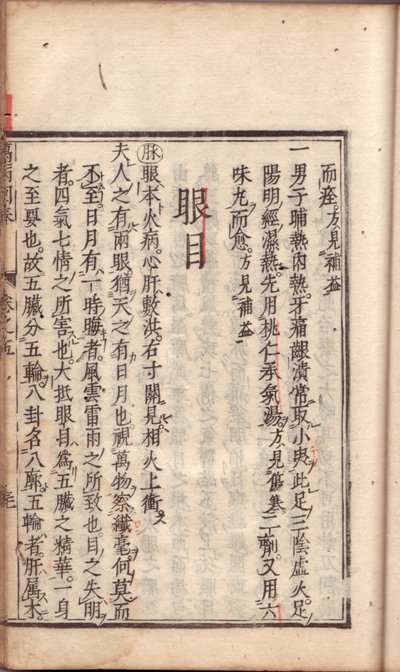 而痊方見補益
一男子晡熱內熱牙痛齦潰常取小臾此足三陰虛火足
陽明經濕熱先用桃仁承氣湯方見傷寒二劑又用六
味丸而愈方見補益
眼目
脉眼本火病心肝數洪右寸關見相火上衝
夫人之有兩眼猶天之有日月也視萬物察纖毫何莫而
不至日月有一時勝者風雲雷雨之所致也目之失明
者四氣七情之所害也大抵眼目爲五臟之精華一身
之至要也故五臟分五輪八卦名八廓五輪者肝属木